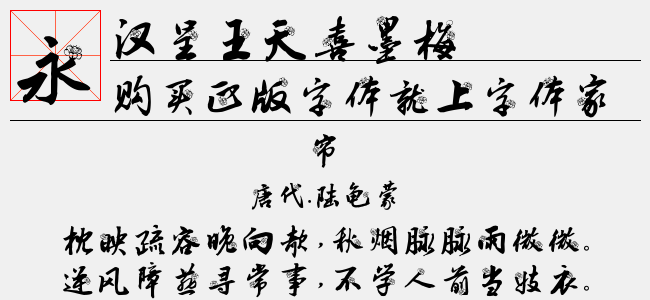 永
汉呈王天喜墨梅
购买正版字体就上字体家
帘
唐代.陆龟蒙
枕映疏容晚向欹,秋烟脉脉雨微微。
逆风障燕寻常事,不学人前当妓衣。